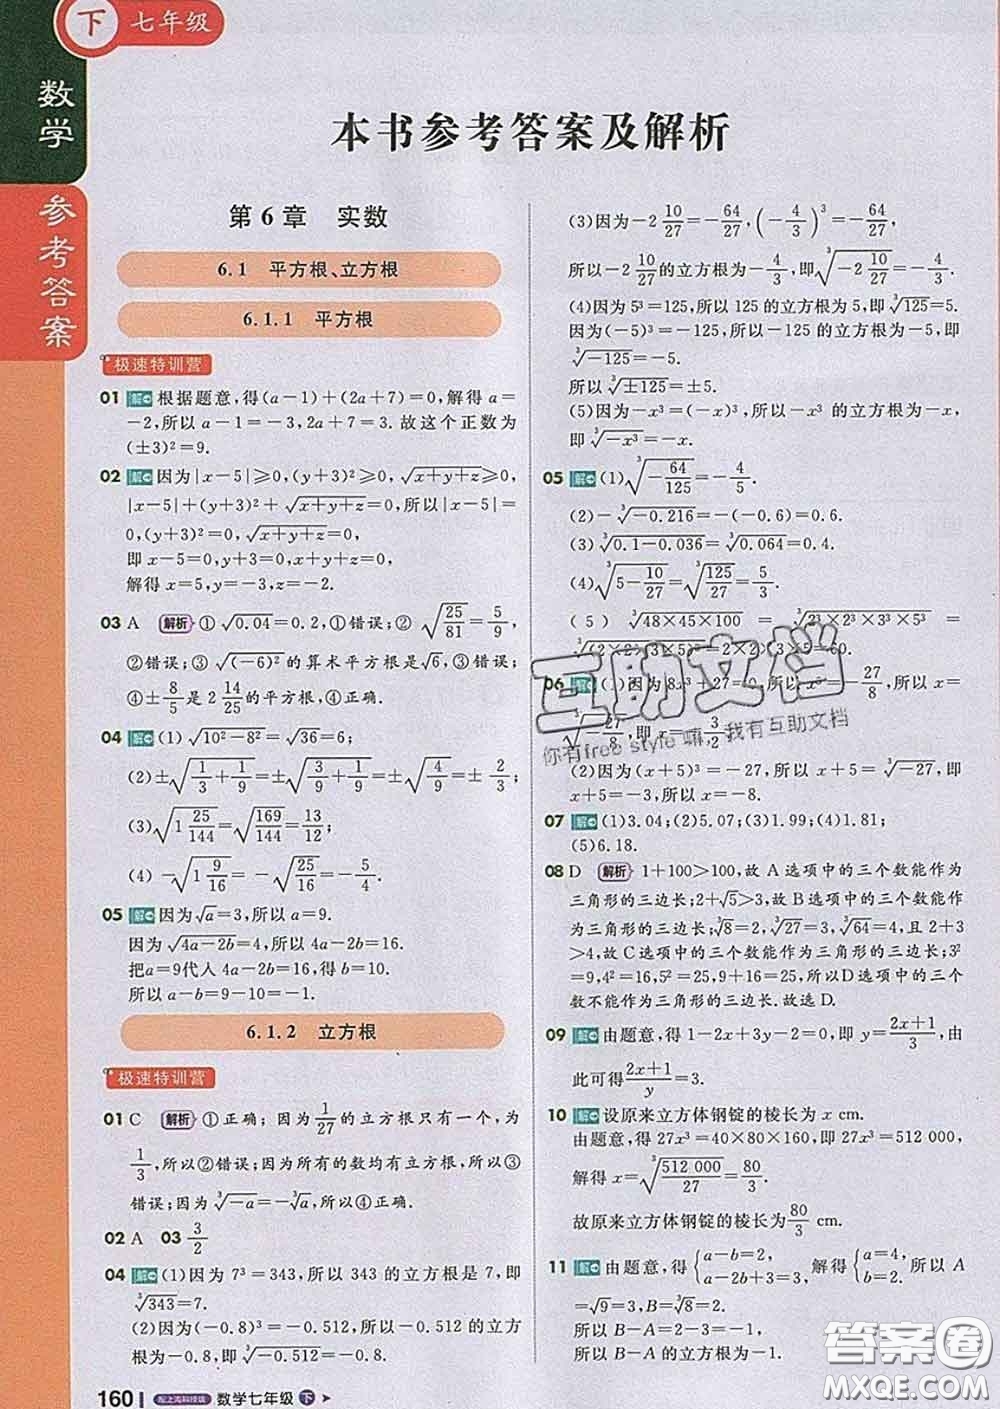 下 七年级
数学
参考答案
本书参考答案及解析
第 6 章 实数
6.1 平方根、立方根
6.1.1 平方根
极速特训营
01 解 根据题意,得(a-1)+(2a+7)=0,解得 a=
-2,所以 a-1=-3,2a+7=3.故这个正数为
(±3)²=9.
02 解 因为|x-5|≥0,(y+3)²≥0,√(x+y+z)≥0,
|x-5|+(y+3)²+√(x+y+z)=0,所以|x-5|
=0,(y+3)²=0,√(x+y+z)=0,
即 x-5=0,y+3=0,x+y+z=0,
解得 x=5,y=-3,z=-2.
03 A 解析 ①√0.04=0.2,①错误;②√(25/81)=5/9,
②错误;③√(-6)²的算术平方根是√6,③错误;
④±8/5是2 14/25的平方根,④正确.
04 解 (1)√(10²-8²)=√36=6;
(2)±√(1/3+1/9)=±√(3/9+1/9)=±√(4/9)=±2/3;
(3)√(1 25/144)=√(169/144)=13/12;
(4)-√(1 9/16)=-√(25/16)=-5/4.
05 解 因为√a=3,所以 a=9.
因为√(4a-2b)=4,所以 4a-2b=16.
把a=9代入 4a-2b=16,得 b=10.
所以 a-b=9-10=-1.
6.1.2 立方根
极速特训营
01 C 解析 ①正确;因为1/27的立方根只有一个,为
1/3,所以②错误;因为所有的数均有立方根,所以③
错误;因为∛(-a)=-∛a,所以④正确.
02 A 03 3/2
04 解 (1)因为 7³=343,所以 343 的立方根是 7,即
∛343=7.
(2)因为(-0.8)³=-0.512,所以-0.512 的立方
根为-0.8,即∛(-0.512)=-0.8.
(3)因为-2 10/27=-64/27,(-4/3)³=-64/27,
所以-2 10/27的立方根为-4/3,即∛(-2 10/27)=-4/3.
(4)因为 5³=125,所以 125 的立方根为 5,即∛125=5.
因为(-5)³=-125,所以-125 的立方根为-5,即
∛(-125)=-5.
所以∛(±125)=±5.
(5)因为-x³=(-x)³,所以-x³ 的立方根为-x,
即∛(-x³)=-x.
05 解 (1)∛(-64/125)=-4/5.
(2)-∛(-0.216)=-(-0.6)=0.6.
(3)∛(0.1-0.036)=∛0.064=0.4.
(4)∛(5-10/27)=∛(125/27)=5/3.
(5)∛(48×45×100)=∛(2³×2³×3³×5³)
=∛((2×2×3×5)³)=2×2×3×5=60.
06 解 (1)因为8x³+27=0,所以x³=-27/8,所以 x=
∛(-27/8),即 x=-3/2.
(2)因为(x+5)³=-27,所以 x+5=∛(-27),即
x+5=-3,所以 x=-8.
07 解 (1)3.04;(2)5.07;(3)1.99;(4)1.81;
(5)6.18.
08 D 解析 1+100>100,故 A 选项中的三个数能作为
三角形的三边长;2+√5>3,故 B 选项中的三个数能作
为三角形的三边长;∛8=2,∛27=3,∛64=4,且 2+
3>4,故 C 选项中的三个数能作为三角形的三边长;3²
=9,4²=16,5²=25,9+16=25,所以D选项中的三个
数不能作为三角形的三边长.故选 D.
09 解 由题意,得 1-2x+3y-2=0,即 y=(2x+1)/3,由
此可得(2x+1)/y=3.
10 解 设原来立方体钢锭的棱长为 x cm.
由题意,得 27x³=40×80×160,即 27x³=512 000,
解得 x=∛(512 000/27)=80/3.
故原来立方体钢锭的棱长为80/3 cm.
11 解 由题意,得{a-b=2, a-2b+3=3, 解得{a=4, b=2. 所以 A
=√9=3,B=∛8=2.
所以 B-A=2-3=-1.
所以∛(B-A)=∛(-1)=-1.
互助文档
你有free style 嘛,我有互助文档
160 配上海科技版 数学七年级 下
答案圈
MXQE.COM